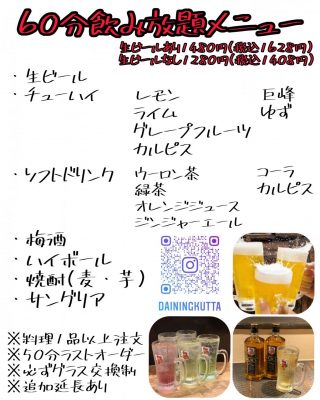 60分飲み放題メニュー
生ビールあり1480円(税込1628円)
生ビールなし1280円(税込1408円)
・生ビール
・チューハイ レモン 巨峰
ライム ゆず
グレープフルーツ
カルピス
・ソフトドリンク ウーロン茶 コーラ
緑茶 カルピス
オレンジジュース
ジンジャーエール
・梅酒
・ハイボール
・焼酎(麦・芋)
・サングリア
DAININGKUTTA
※料理1品以上注文
※50分ラストオーダー
※必ずグラス交換制
※追加延長あり